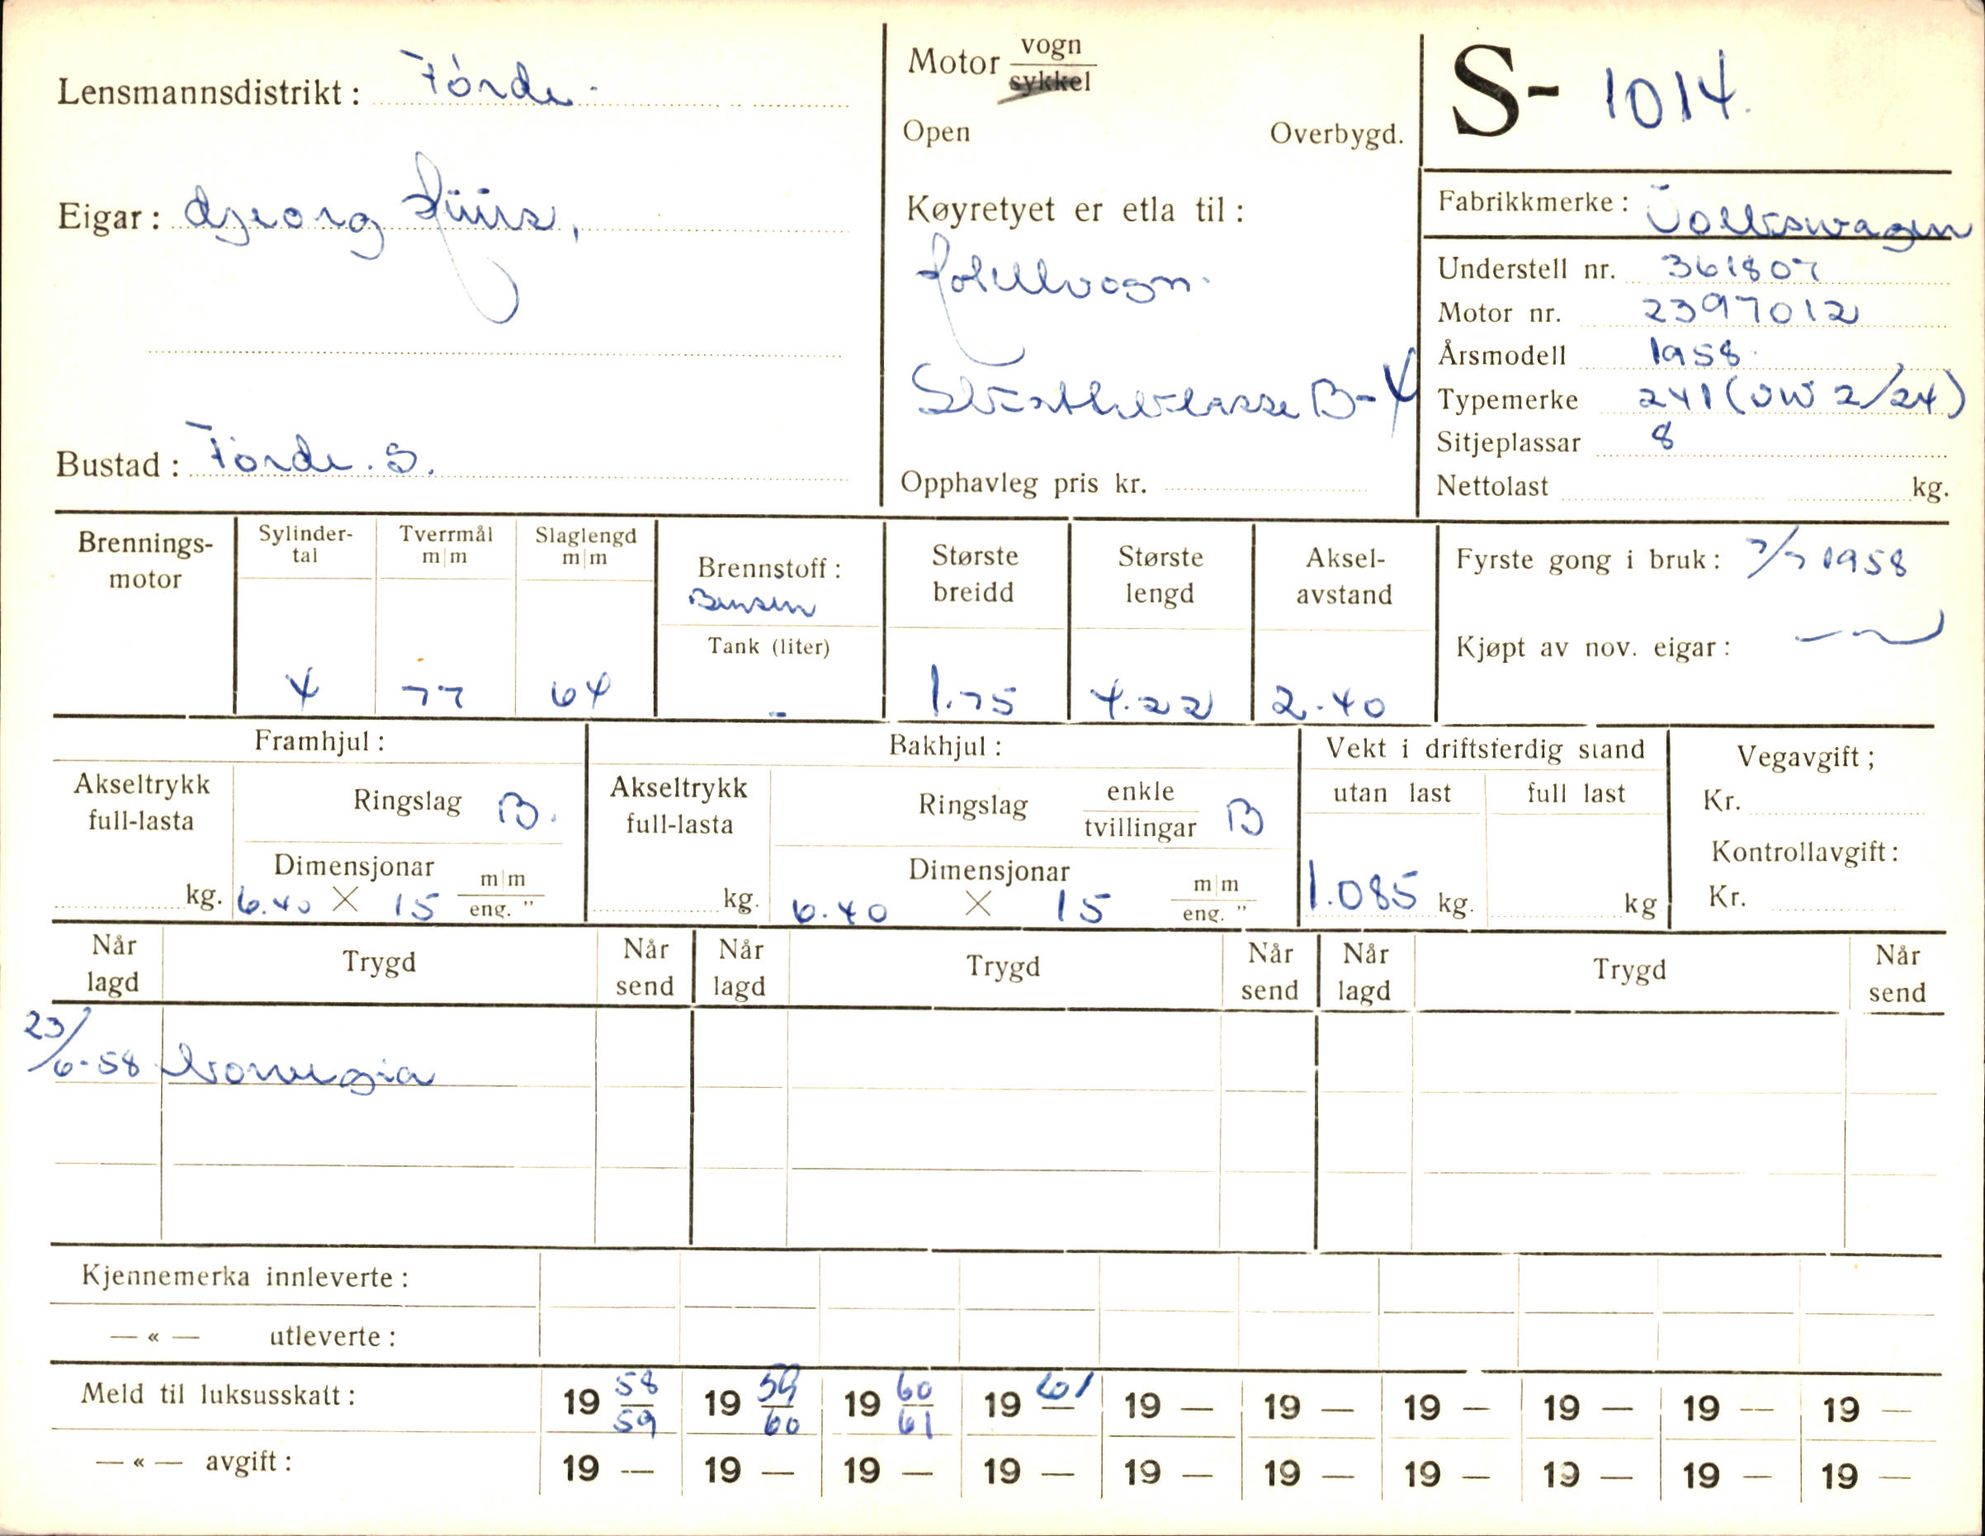 Lensmannsdistrikt: Førde.
Eigar: Georg
Bustad: Førde. S.
Motor vogn
sykkel
Open Overbygd.
Køyretyet er etla til:
B-4
Opphavleg pris kr.
S- 1014.
Fabrikkmerke: Volkswagen
Understell nr. 361807
Motor nr. 2397012
Årsmodell 1958.
Typemerke 241 (VW 2/24)
Sitjeplassar 8
Nettolast kg.
Brennings-
motor
Sylinder-
tal
4
Tverrmål
m|m
77
Slaglengd
m|m
64
Brennstoff:
Bensin
Tank (liter)
-
Største
breidd
1.75
Største
lengd
4.22
Aksel-
avstand
2.40
Fyrste gong i bruk: 7/7 1958
Kjøpt av nov. eigar:
Framhjul:
Akseltrykk
full-lasta
kg.
Ringslag B.
Dimensjonar
6.40 X 15 m|m
eng. "
Bakhjul:
Akseltrykk
full-lasta
kg.
Ringslag enkle
tvillingar B
Dimensjonar
6.40 X 15 m|m
eng. "
Vekt i driftsferdig stand
utan last full last
1.085 kg. kg
Vegavgift;
Kr.
Kontrollavgift:
Kr.
Når
lagd
Trygd
Når
send
Når
lagd
Trygd
Når
send
Når
lagd
Trygd
Når
send
23/6-58 Norvegia
Kjennemerka innleverte:
— « — utleverte:
Meld til luksusskatt: 19 58/59 19 59/60 19 60/61 19 61 19 — 19 — 19 — 19 — 19 — 19 —
— « — avgift: 19 — 19 — 19 — 19 — 19 — 19 — 19 — 19 — 19 — 19 —